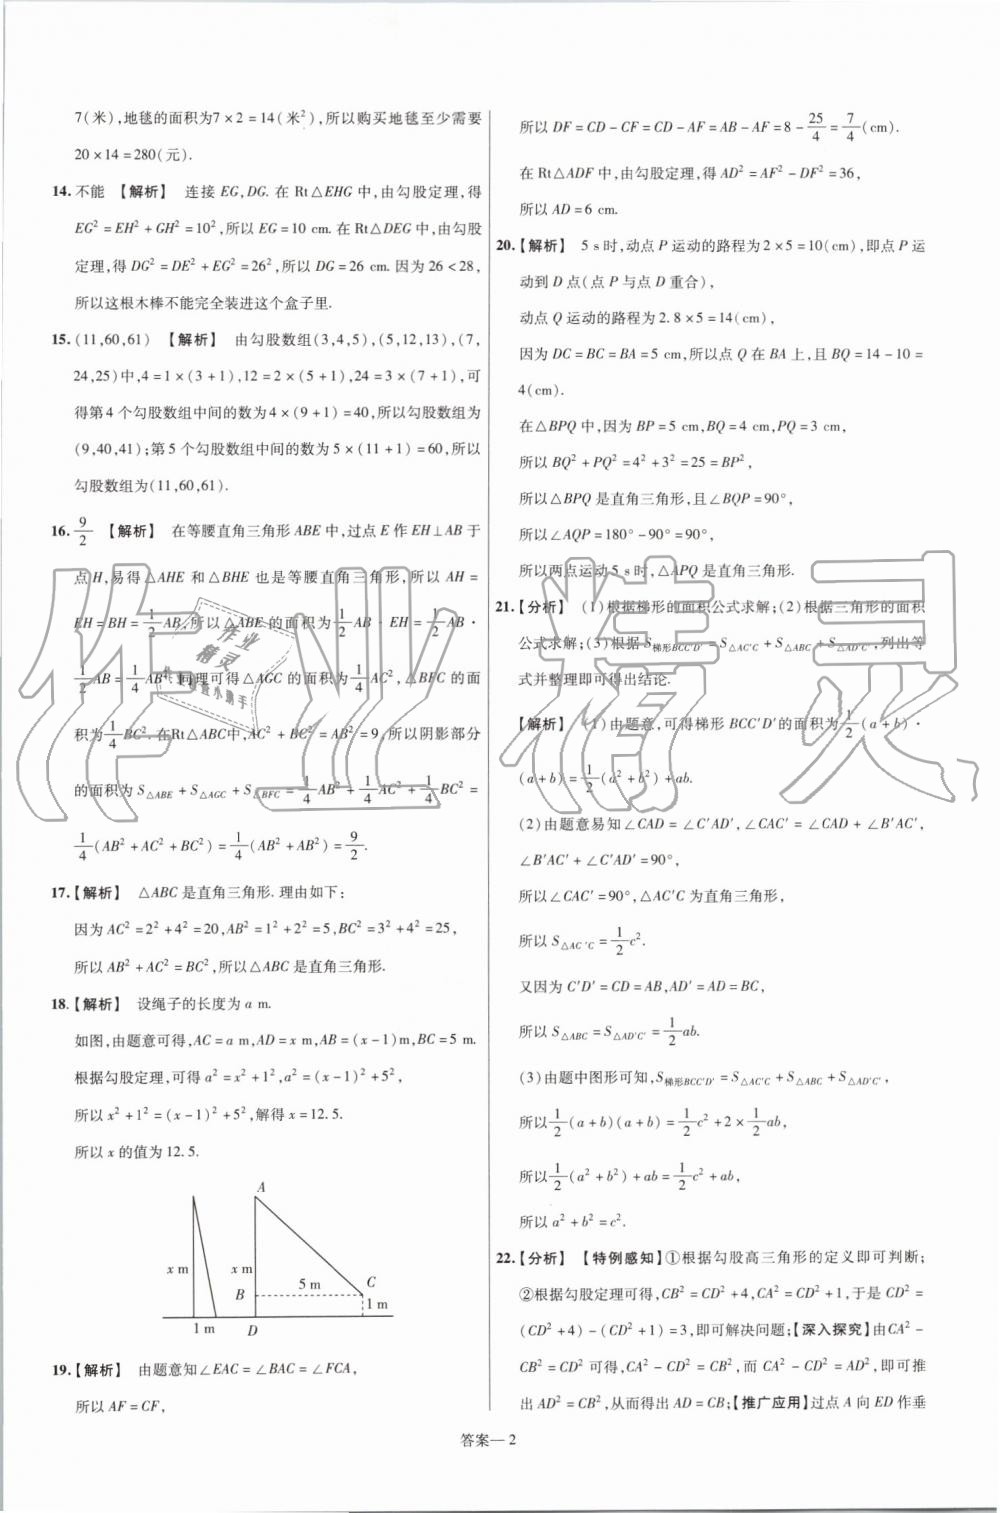 7(米),地毯的面积为7×2=14(米²),所以购买地毯至少需要
20×14=280(元).
14.不能 【解析】 连接 EG,DG.在 Rt△EHG 中,由勾股定理,得
EG²=EH²+GH²=10²,所以 EG=10 cm.在 Rt△DEG 中,由勾股
定理,得 DG²=DE²+EG²=26²,所以 DG=26 cm.因为 26<28,
所以这根木棒不能完全装进这个盒子里.
15.(11,60,61) 【解析】 由勾股数组(3,4,5),(5,12,13),(7,
24,25)中,4=1×(3+1),12=2×(5+1),24=3×(7+1),可
得第4个勾股数组中间的数为4×(9+1)=40,所以勾股数组为
(9,40,41);第5个勾股数组中间的数为5×(11+1)=60,所以
勾股数组为(11,60,61).
16. 9/2 【解析】 在等腰直角三角形 ABE 中,过点 E 作 EH⊥AB 于
点 H,易得△AHE 和△BHE 也是等腰直角三角形,所以 AH=
EH=BH=1/2 AB,所以△ABE 的面积为 1/2 AB·EH=1/2 AB·
1/2 AB=1/4 AB²,同理可得△AGC 的面积为 1/4 AC²,△BFC 的面
积为 1/4 BC².在Rt△ABC中,AC²+BC²=AB²=9,所以阴影部分
的面积为 S△ABE+S△AGC+S△BFC=1/4 AB²+1/4 AC²+1/4 BC²=
1/4(AB²+AC²+BC²)=1/4(AB²+AB²)=9/2.
17.【解析】 △ABC 是直角三角形.理由如下:
因为 AC²=2²+4²=20,AB²=1²+2²=5,BC²=3²+4²=25,
所以 AB²+AC²=BC²,所以△ABC 是直角三角形.
18.【解析】 设绳子的长度为 a m.
如图,由题意可得,AC=a m,AD=x m,AB=(x-1)m,BC=5 m.
根据勾股定理,可得 a²=x²+1²,a²=(x-1)²+5²,
所以 x²+1²=(x-1)²+5²,解得 x=12.5.
所以 x 的值为12.5.
A
x m
x m
5 m
C
B
1 m
1 m
D
19.【解析】 由题意知∠EAC=∠BAC=∠FCA,
所以 AF=CF,
所以 DF=CD-CF=CD-AF=AB-AF=8-25/4=7/4(cm).
在 Rt△ADF 中,由勾股定理,得 AD²=AF²-DF²=36,
所以 AD=6 cm.
20.【解析】 5 s时,动点 P 运动的路程为2×5=10(cm),即点 P 运
动到 D 点(点 P 与点 D 重合),
动点 Q 运动的路程为2.8×5=14(cm),
因为 DC=BC=BA=5 cm,所以点 Q 在 BA 上,且 BQ=14-10=
4(cm).
在△BPQ 中,因为 BP=5 cm,BQ=4 cm,PQ=3 cm,
所以 BQ²+PQ²=4²+3²=25=BP²,
所以△BPQ 是直角三角形,且∠BQP=90°,
所以∠AQP=180°-90°=90°,
所以两点运动5 s时,△APQ 是直角三角形.
21.【分析】 (1)根据梯形的面积公式求解;(2)根据三角形的面积
公式求解;(3)根据 S梯形BCC′D′=S△AC′C+S△ABC+S△AD′C′,列出等
式并整理即可得出结论.
【解析】 (1)由题意,可得梯形 BCC′D′的面积为 1/2(a+b)·
(a+b)=1/2(a²+b²)+ab.
(2)由题意易知∠CAD=∠C′AD′,∠CAC′=∠CAD+∠B′AC′,
∠B′AC′+∠C′AD′=90°,
所以∠CAC′=90°,△AC′C 为直角三角形,
所以 S△AC′C=1/2 c².
又因为 C′D′=CD=AB,AD′=AD=BC,
所以 S△ABC=S△AD′C′=1/2 ab.
(3)由题中图形可知,S梯形BCC′D′=S△AC′C+S△ABC+S△AD′C′,
所以 1/2(a+b)(a+b)=1/2 c²+2×1/2 ab,
所以 1/2(a²+b²)+ab=1/2 c²+ab,
所以 a²+b²=c².
22.【分析】 【特例感知】①根据勾股高三角形的定义即可判断;
②根据勾股定理可得,CB²=CD²+4,CA²=CD²+1,于是 CD²=
(CD²+4)-(CD²+1)=3,即可解决问题;【深入探究】由CA²-
CB²=CD² 可得,CA²-CD²=CB²,而 CA²-CD²=AD²,即可推
出 AD²=CB²,从而得出 AD=CB;【推广应用】过点 A 向 ED 作垂
答案—2
作业精灵
作业
精灵